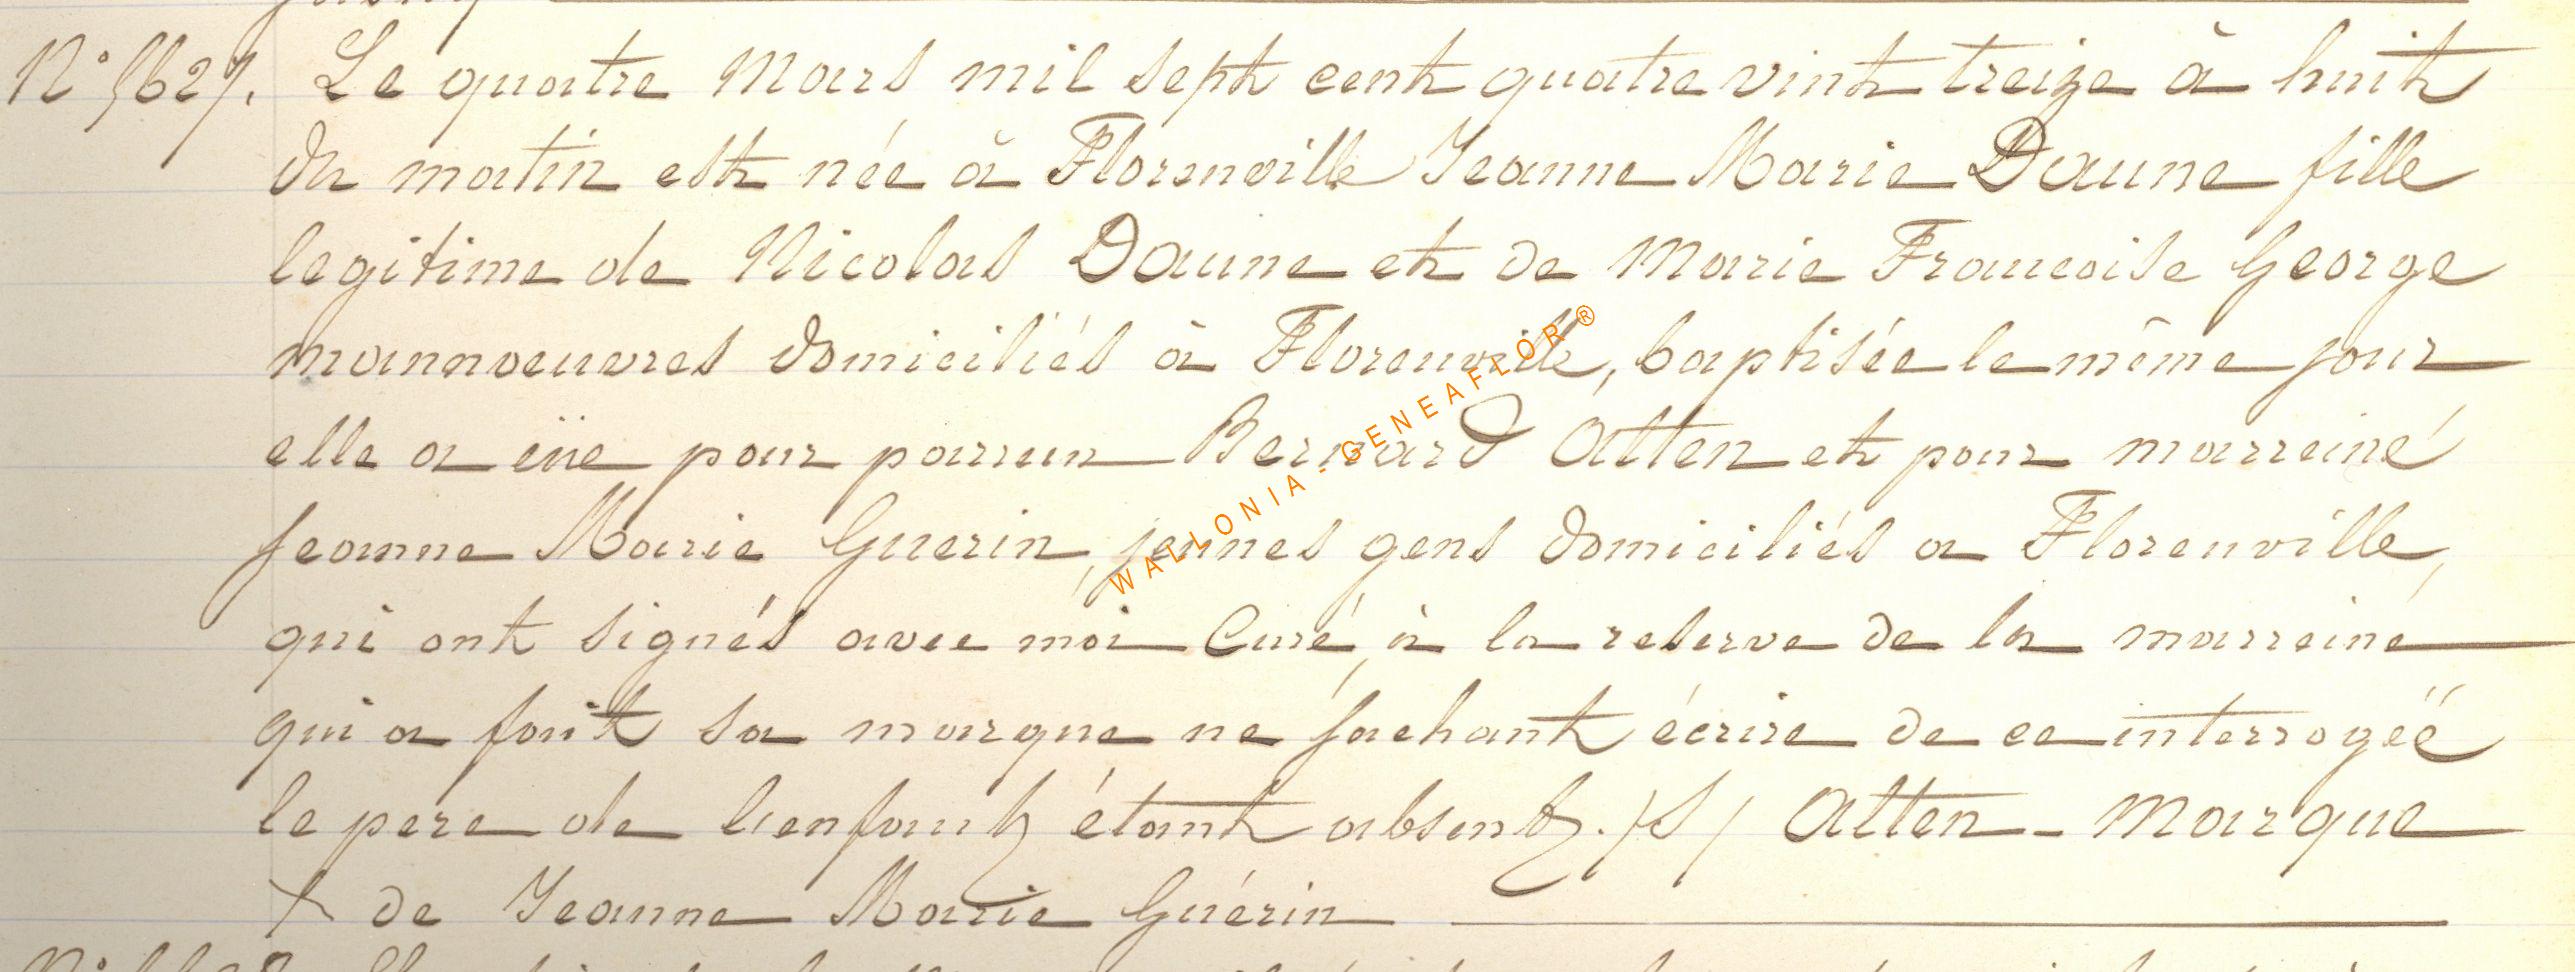 N° 5627. Le quatre Mars mil sept cent quatre vint treize à huit
du matin est née à Florenville Jeanne Marie Daune fille
legitime de Nicolas Daune et de Marie Francoise George
mannoeuvres domiciliés à Florenville, baptisée le même jour
elle a eüe pour parrein Bernard Atten et pour marreine
Jeanne Marie Guerin, jeunes gens domiciliés a Florenville,
qui ont signés avec moi Curé, à la reserve de la marreine
qui a fait sa marque ne sachant écrire de ce interrogéé
le pere de lienfant étant absent. /S/ Atten - Marque
X de Jeanne Marie Guérin
WALLONIA.GENEAFLOR®